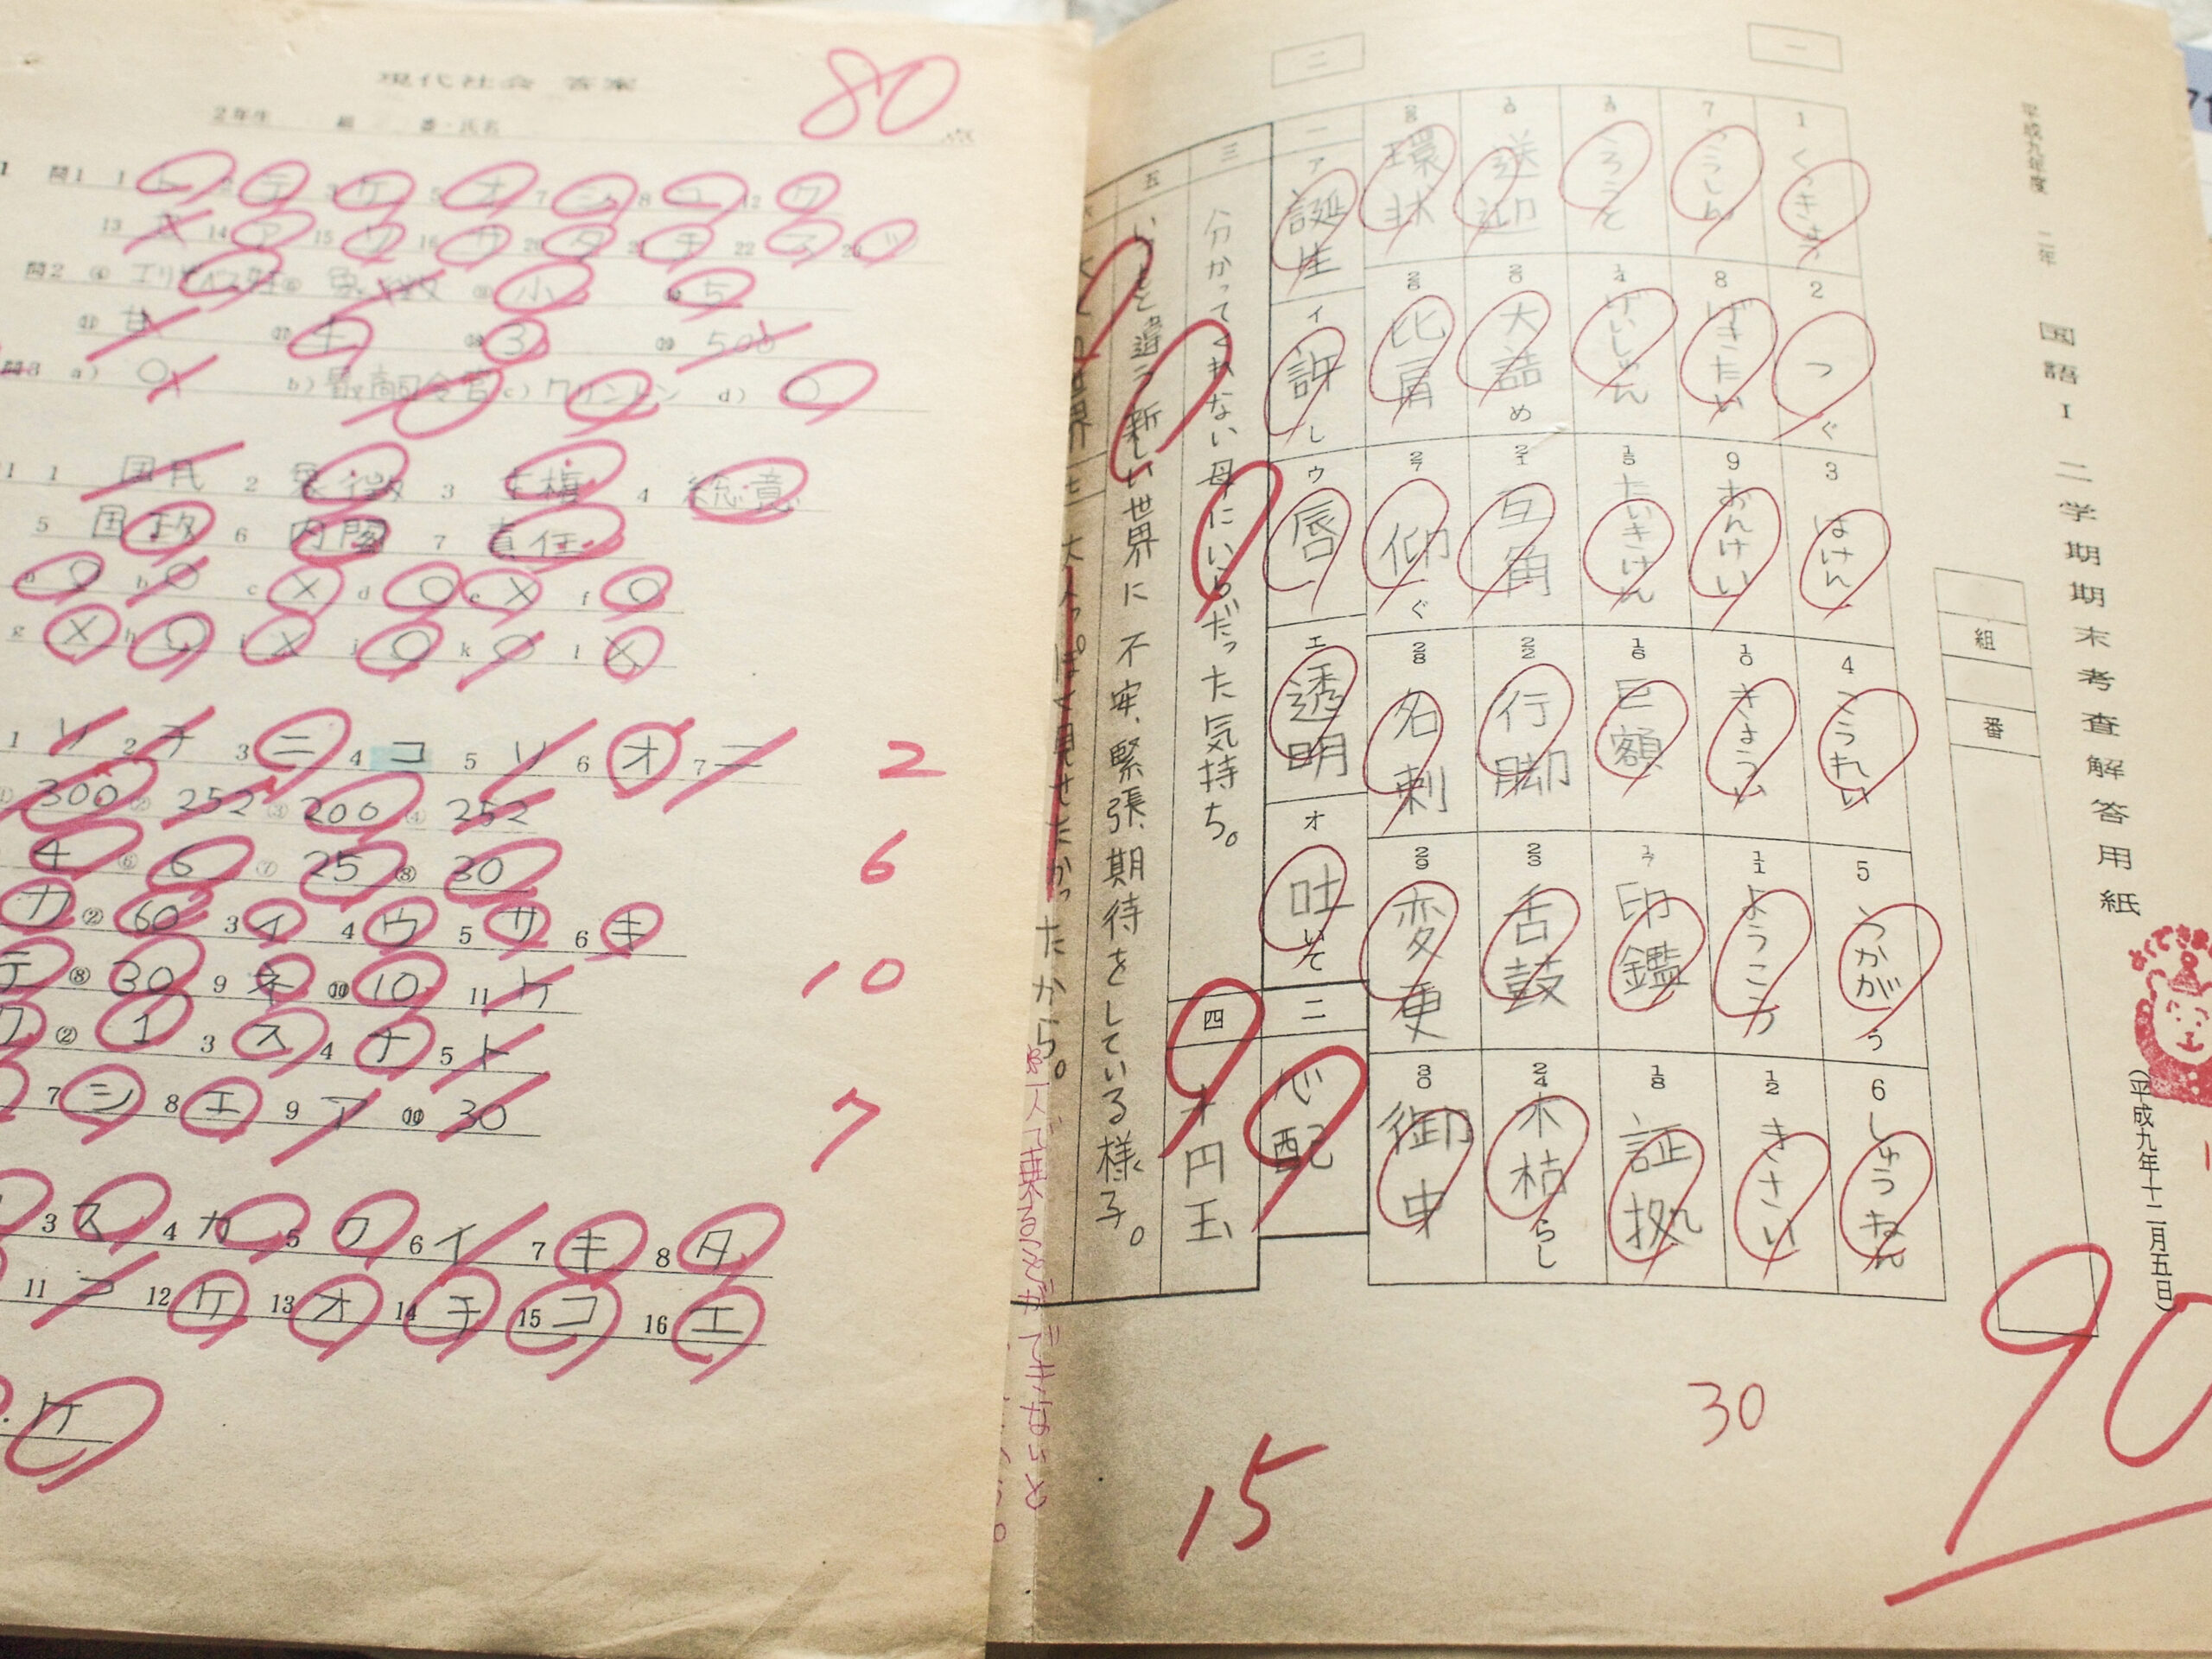 現代社会 答案
80点
2年生 組 番・氏名
問1 1 ト 2 テ 3 ケ 5 オ 7 シ 8 コ 12 ク
13 14 ア 15 16 サ 20 タ 21 チ 22 24 ツ
問2 エリザベス 象徴 小 5
甘 ⑰ 七 ⑱ 3 ⑲ 500
問3 a) 〇 b) 最高司令官 c) クリントン d) 〇
1 1 国民 2 象徴 3 主権 4 総意
5 国政 6 内閣 7 責任
〇 b 〇 c × d 〇 e × f 〇
g × h 〇 i × j 〇 k 〇 l ×
1 ソ 2 チ 3 ニ 4 コ 5 ソ 6 オ 7 ニ 2
300 252 ③ 200 ④ 252
4 ⑥ 6 ⑦ 25 ⑧ 30 6
カ ② 60 3 イ 4 ウ 5 サ 6 キ
テ ⑧ 30 9 ネ ⑩ 10 11 ケ 10
② 1 3 ス 4 ナ 5 ト
7 シ 8 エ 9 ア ⑩ 30 7
3 ス 4 カ 5 ク 6 イ 7 キ 8 タ
11 12 ケ 13 オ 14 チ 15 コ 16 エ
ケ
平成九年度 二年 国語I 二学期期末考査解答用紙
(平成九年十二月五日)
よくできました
組 番
90
一
1 くっきょう 2 つぐ 3 はけん 4 こうれい 5 うかがう 6 しゅうねん
7 こうしん 8 げきたい 9 おんけい 10 きょうい 11 ようこう 12 きさい
13 ろうと 14 げいしゅん 15 たいきけん 16 巨額 17 印鑑 18 証拠
19 送迎 20 大詰め 21 互角 22 行脚 23 舌鼓 24 木枯らし
25 環状 26 比肩 27 仰ぐ 28 名刺 29 変更 30 御中
30
二
一 ア 誕生 イ 許し ウ 唇 エ 透明 オ 吐いて
二 心配
三 分かってくれない母にいらだった気持ち。
四 十円玉
五 いつもと違う新しい世界に不安、緊張、期待をしている様子。
七 大人っぽく見せたかったから。
15